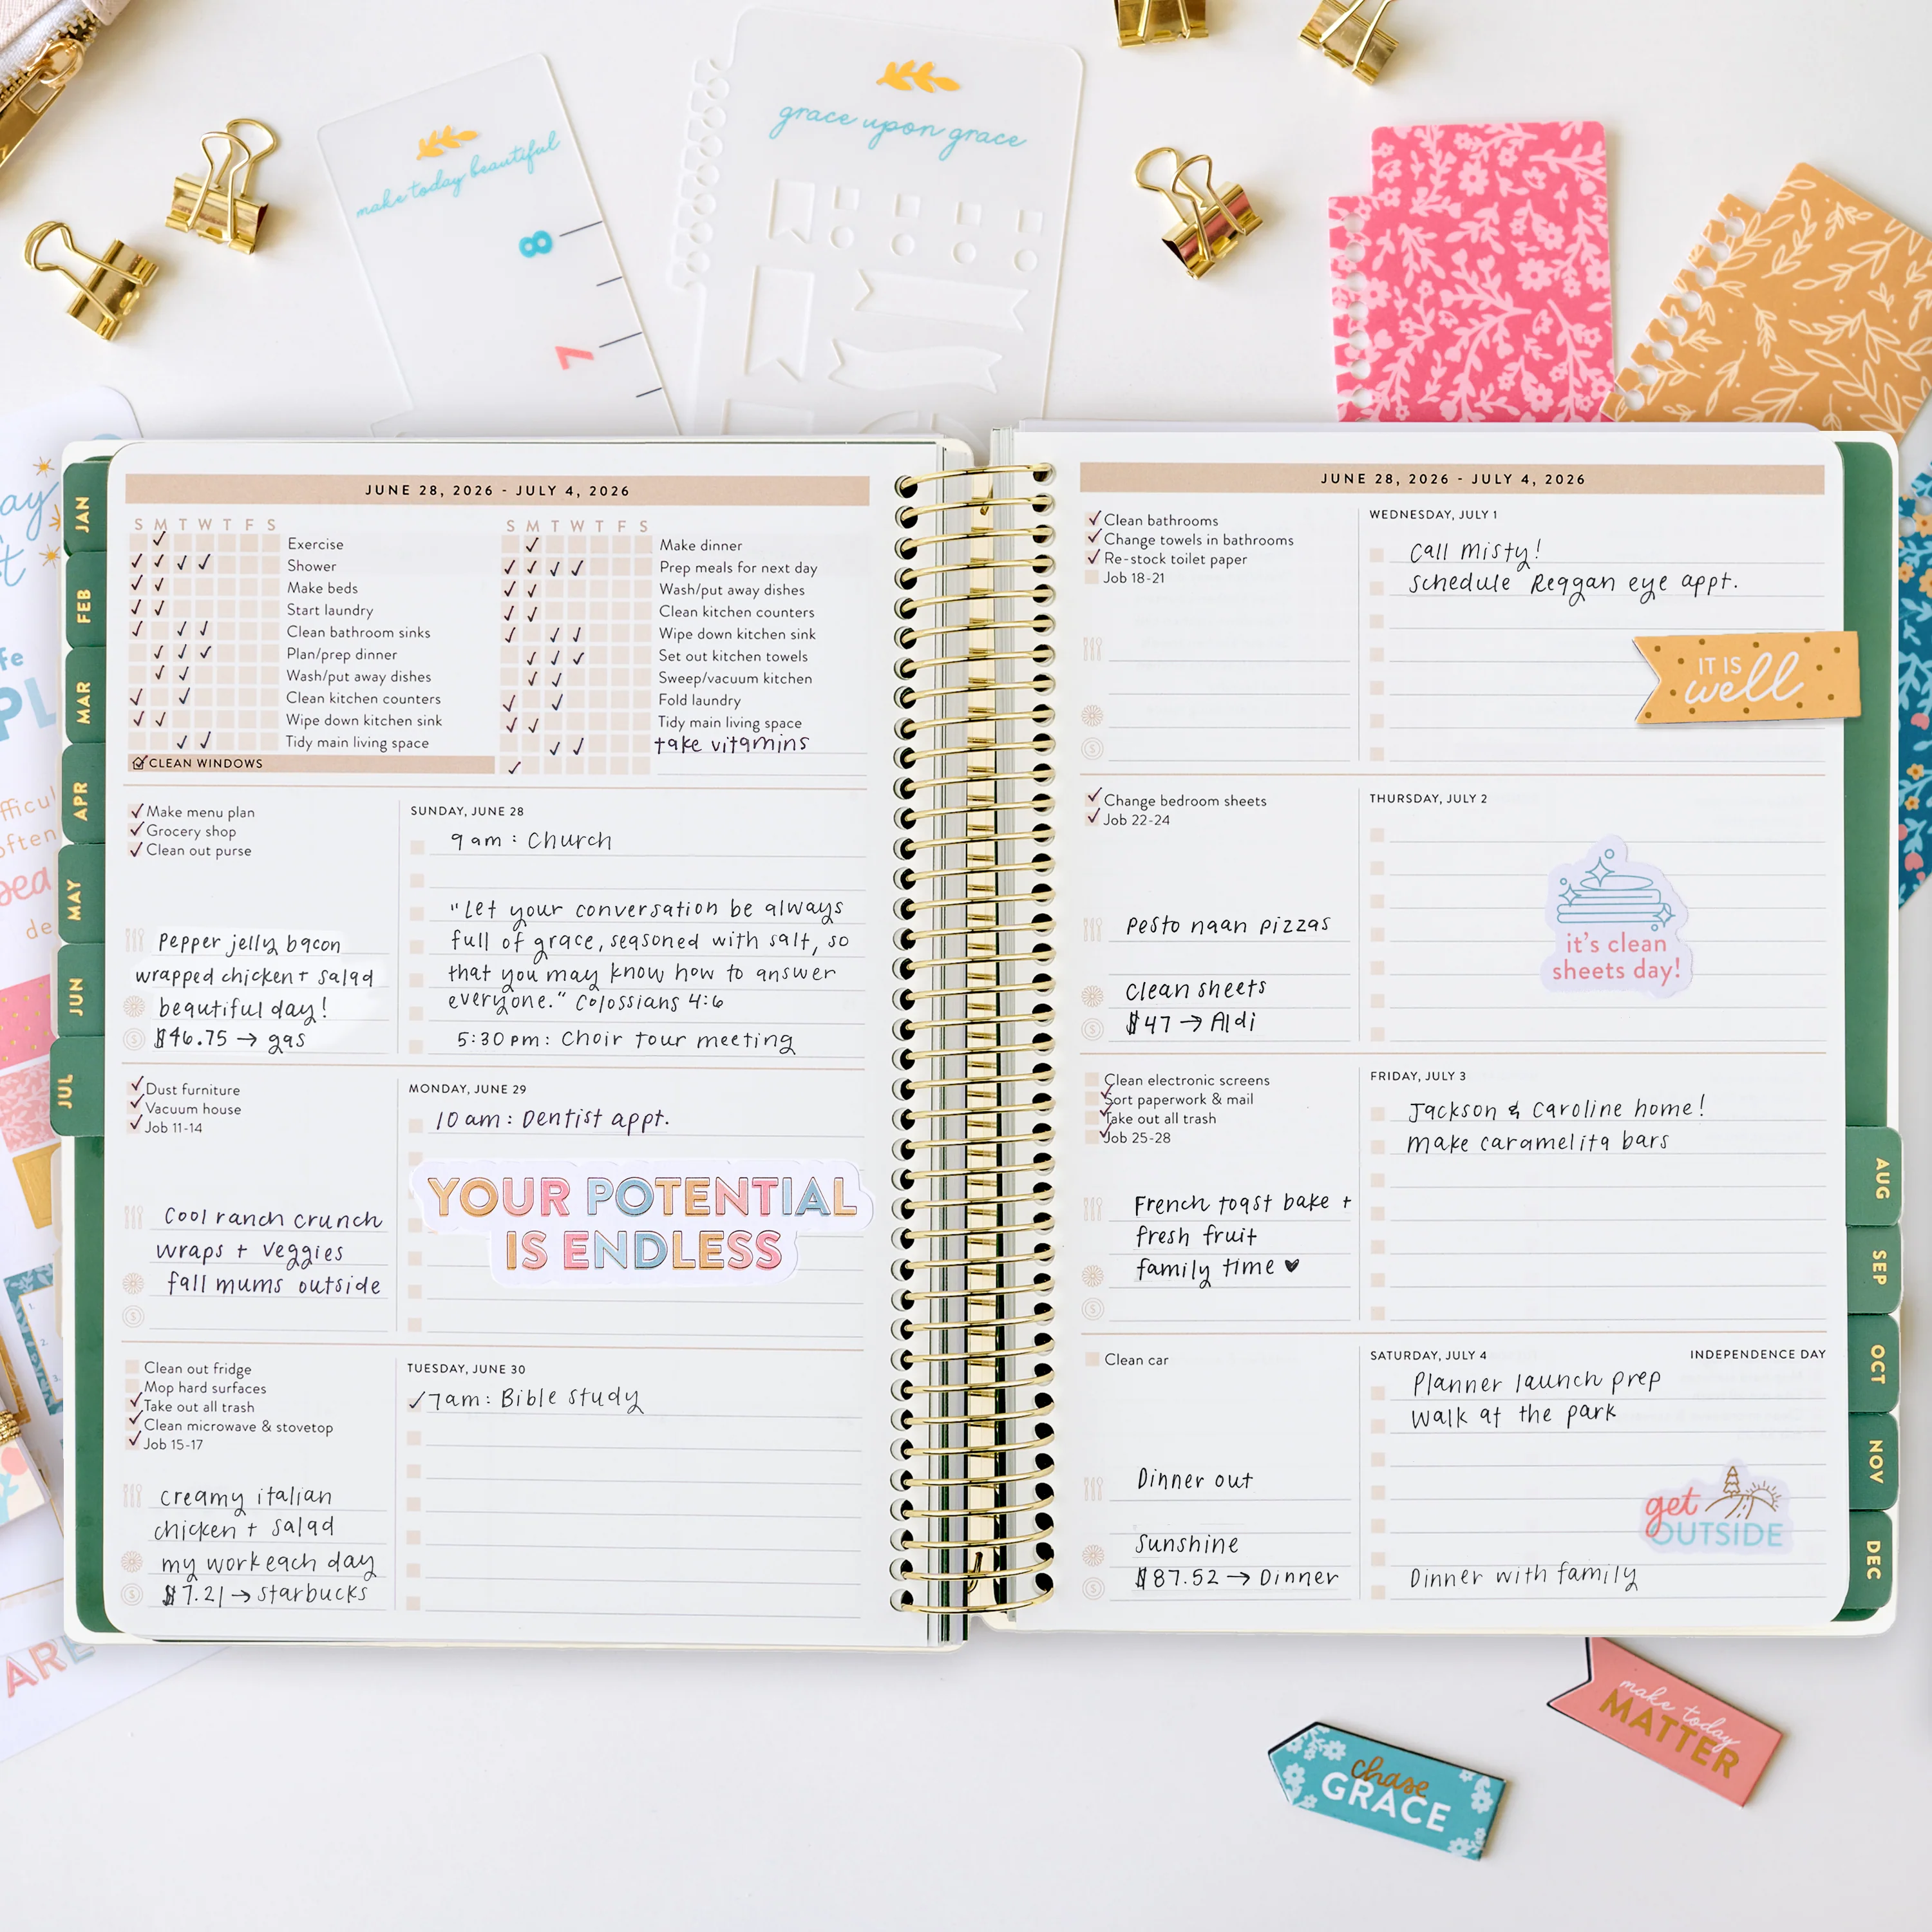 make today beautiful
8
7
grace upon grace
JAN
FEB
MAR
APR
MAY
JUN
JUL
JUNE 28, 2026 - JULY 4, 2026
S M T W T F S
Exercise
Shower
Make beds
Start laundry
Clean bathroom sinks
Plan/prep dinner
Wash/put away dishes
Clean kitchen counters
Wipe down kitchen sink
Tidy main living space
CLEAN WINDOWS
S M T W T F S
Make dinner
Prep meals for next day
Wash/put away dishes
Clean kitchen counters
Wipe down kitchen sink
Set out kitchen towels
Sweep/vacuum kitchen
Fold laundry
Tidy main living space
take vitamins
Make menu plan
Grocery shop
Clean out purse
Pepper jelly bacon
wrapped chicken + salad
beautiful day!
$46.75 → gas
SUNDAY, JUNE 28
9 am : Church
"Let your conversation be always
full of grace, seasoned with salt, so
that you may know how to answer
everyone." Colossians 4:6
5:30 pm: Choir tour meeting
Dust furniture
Vacuum house
Job 11-14
Cool ranch crunch
wraps + veggies
fall mums outside
MONDAY, JUNE 29
10 am: Dentist appt.
YOUR POTENTIAL
IS ENDLESS
Clean out fridge
Mop hard surfaces
Take out all trash
Clean microwave & stovetop
Job 15-17
creamy italian
chicken + salad
my work each day
$7.21 → starbucks
TUESDAY, JUNE 30
7am: Bible study
JUNE 28, 2026 - JULY 4, 2026
Clean bathrooms
Change towels in bathrooms
Re-stock toilet paper
Job 18-21
WEDNESDAY, JULY 1
Call Misty!
schedule Reggan eye appt.
IT IS
well
Change bedroom sheets
Job 22-24
pesto naan pizzas
clean sheets
$47 → Aldi
THURSDAY, JULY 2
it's clean
sheets day!
Clean electronic screens
Sort paperwork & mail
Take out all trash
Job 25-28
French toast bake +
fresh fruit
family time ♥
FRIDAY, JULY 3
Jackson & Caroline home!
make caramelita bars
Clean car
Dinner out
Sunshine
$87.52 → Dinner
SATURDAY, JULY 4
INDEPENDENCE DAY
Planner launch prep
walk at the park
get
OUTSIDE
Dinner with family
AUG
SEP
OCT
NOV
DEC
make today
MATTER
chase
GRACE